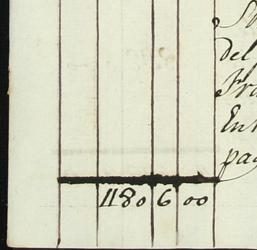 del
Fra
Ent
pag
1180 6 00